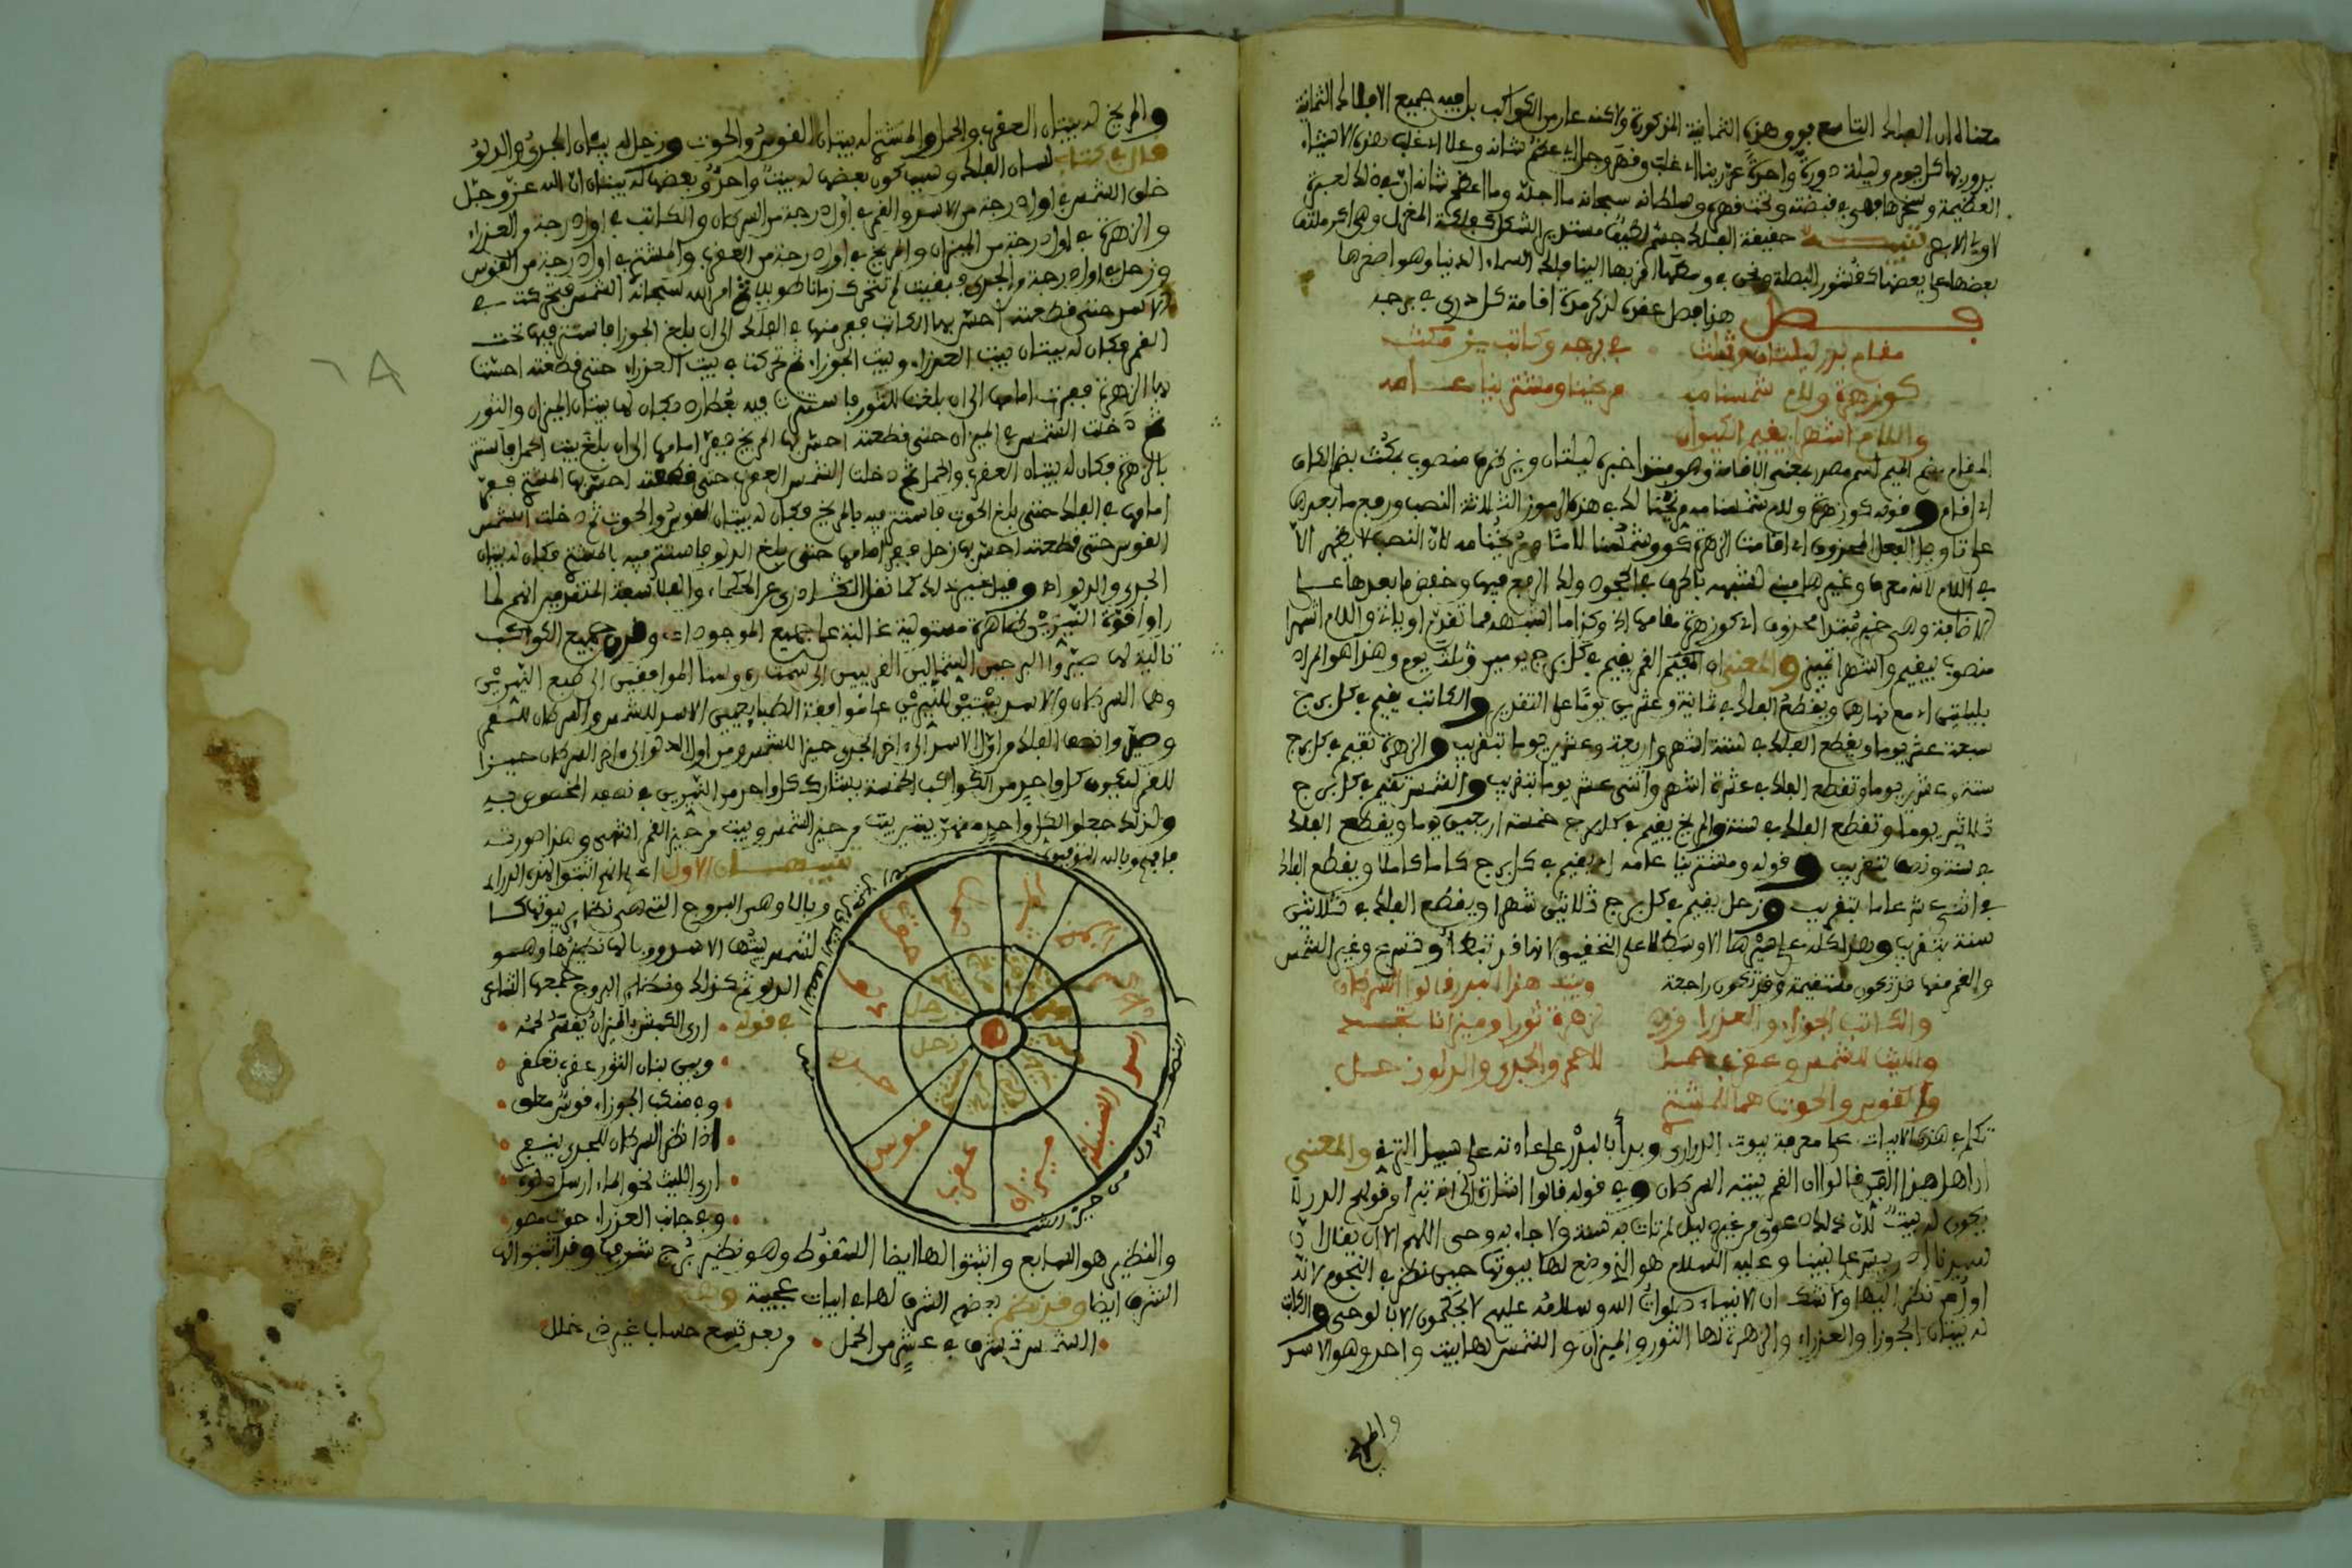 معناه ان الفلك التاسع بروز هذه الثمانية المذكورة ولاكنه عار من الكواكب بل فيه جميع الافلاك الثمانية
يدور بها كل يوم وليلة دورة واحدة عز ربنا اي غلب وقهر وجل اي عظم شانه وعلا اي غلب هذه الاشياء
العظيمة وسخرها فهي في قبضته وتحت قهره وسلطانه سبحانه ما اجله وما اعظم شانه ان في ذلك لعبرة
لاولي الابصار تنبيه حقيقة الفلك جسم لطيف مستدير الشكل كفلكة المغزل وهي اكر ملتف
بعضها على بعضها كقشور البصلة ونحن في وسطها اقربها الينا فلك السماء الدنيا وهو اصغرها
فصل هذا فصل عقده لذكر مدة اقامة كل دري في برجه
مقام بدر ليلتان وثلث في برجه وكاتب يز مكث
كوزهرة ولام شمسنا مه مريخنا ومشتر بنا عامه
واللام اشهرا يقيم الكيوان
المقام بضم الميم اسم مصدر بمعنى الاقامة وهو مبتدا خبره ليلتان ويز ظرف منصوب بمكث بضم الكاف
اي اقام وقوله كوزهرة ولام شمسنا مه مريخنا لك في هذه الرموز الثلاثة النصب ورفع ما بعدها
على تاويل الفعل المحذوف اي اقامت الزهرة كو وشمسنا لاما ومريخنا مه لان النصب لا يظهر الا
في اللام لانه معرب وغيرها مبني لشبهه بالحرف في الجمود ولك الرفع فيها وخفض ما بعدها على
الاضافة وهي خبر مبتدا محذوف اي كوزهرة مقامها الخ وكذا ما اشبهه مما تقدم او ياتي واللام اشهرا
منصوب بيقيم واشهرا تمييز والمعنى ان القمر يقيم في كل برج يومين وثلث يوم وهذا هو المراد
بليلتين اي مع نهارهما ويقطع الفلك في ثمانية وعشرين يوما على التقدير والكاتب يقيم في كل برج
سبعة عشر يوما ويقطع الفلك في ستة اشهر واربعة وعشرين يوما بتقريب والزهرة تقيم في كل برج
ستة وعشرين يوما وتقطع الفلك في عشرة اشهر واثنى عشر يوما بتقريب والشمس تقيم في كل برج
ثلاثين يوما وتقطع الفلك في سنة والمريخ يقيم في كل برج خمسة اربعين يوما ويقطع الفلك
في سنة ونصف بتقريب وقوله ومشتر بنا عامه اي يقيم في كل برج عاما كاملا ويقطع الفلك
في اثنى عشر عاما بتقريب وزحل يقيم في كل برج ثلاثين شهرا ويقطع الفلك في ثلاثين
سنة بتقريب وهذا كله على سيرها الاوسط لا على التحقيق لانها قد تبطئ وقد تسرع وغير الشمس
والقمر منها قد تكون مستقيمة وقد تكون راجعة وبيت هذا البدر قالوا السرطان
والكاتب الجوزا والعذرا وزد لزهرة ثورا وميزانا تجد
والليث للشمس وعقرب حمل للاحمر والجدي والدلو زحل
والقوس والحوت هما للمشتر
تكلم في هذه الابيات على معرفة بيوت الدراري وبدأ بالبدر على عادته على سبيل الترقي والمعنى
ان اهل هذا الفن قالوا ان القمر بيته السرطان وفي قوله قالوا اشارة الى انه تبرا من قولهم
يكون له بيت لان ذلك دعوى من غير دليل لم تات به سنة ولا جاء به وحي اللهم الا ان يقال ان
سيدنا ادريس على نبينا وعليه السلام هو الذي وضع لها بيوتها حين نظر في النجوم لانه
اول من نظر اليها ولا شك ان الانبياء صلوات الله وسلامه عليهم لا يحكمون الا بالوحي والكاتب
له بيتان الجوزا والعذراء والزهرة لها الثور والميزان والشمس لها بيت واحد وهو الاسد
والمريخ
والمريخ له بيتان العقرب والحمل والمشتري له بيتان القوس والحوت وزحل له بيتان الجدي والدلو
قال في كتاب لسان الفلك وسبب كون بعضها له بيت واحد وبعضها له بيتان ان الله عز وجل
خلق الشمس في اول درجة من الاسد والقمر في اول درجة من السرطان والكاتب في اول درجة من العذراء
والزهرة في اول درجة من الميزان والمريخ في اول درجة من العقرب والمشتري في اول درجة من القوس
وزحل في اول درجة من الجدي فبقيت لم تتحرك زمانا طويلا ثم امر الله سبحانه الشمس فتحركت في
الاسد حتى قطعته احس بها الكاتب ففر منها في الفلك الى ان بلغ الجوزا فاستتر فيها تحت
القمر فكان له بيتان بيت العذراء وبيت الجوزاء ثم تحركت في بيت العذراء حتى قطعته احست
بها الزهرة ففرت امامها الى ان بلغت الثور فاستترت فيه بعطارد فكان لها بيتان الميزان والثور
ثم دخلت الشمس في الميزان حتى قطعته احس بها المريخ ففر امامها الى ان بلغ بيت الحمل فاستتر
بالزهرة فكان له بيتان العقرب والحمل ثم دخلت الشمس العقرب حتى قطعته احس بها المشتري ففر
امامها في الفلك حتى بلغ الحوت فاستتر فيه بالمريخ فكان له بيتان القوس والحوت ثم دخلت الشمس
القوس حتى قطعته احس بها زحل ففر امامها حتى بلغ الدلو فاستتر فيه بالمشتري فكان له بيتان
الجدي والدلو اه وقيل غير ذلك كما نقل عن الحكماء والفلاسفة المتقدمين انهم لما
راوا قوة النيرين ظاهرة مستولية غالبة على جميع الموجودات وقدرن جميع الكواكب
تالية لها صيروا البرجين الشماليين القريبين الى سمت رءوسنا الموافقين الى طبع النيرين
وهما السرطان والاسد بيتين للنيرين على موافقة الطبايع يعني الاسد للشمس والسرطان للقمر
وصيروا نصف الفلك من اول الاسد الى اخر الجدي حيزا للشمس ومن اول الدلو الى اخر السرطان حيزا
للقمر ليكون كل واحد من الكواكب الخمسة يشارك كل واحد من النيرين في نصفه المخصوص به
ولذلك جعلوا لكل واحد منهن بيتين بيت من حيز الشمس وبيت من حيز القمر انتهى وهذا صورته
فافهم وبالله التوفيق
تنبيهان الاول اعلم انهم اثبتوا لهذه الدراري
وبالا وهي البروج التي هي نظاير بيوتها كا
لشمس بيتها الاسد ووبالها نظيرها وهو
الدلو ثم كذلك ونظاير البروج جمعها الشاعر
في قوله ارى الكبش بالميزان يقسم لحمه
وبين بنان الثور عقرب تعكف
وفي منكب الجوزاء قوس معلق
اذا نظر السرطان للجدي ينسجر
ارى الليث نحو الماء ارسل دلوه
وفي جانب العذراء حوت مصور
سرطان
جوزا
ثور
حمل
حوت
دلو
جدي
قوس
عقرب
ميزان
السنبلة
اسد
زحل
زحل
والنظير هو السابع واثبتوا لها ايضا السقوط وهو نظير برج شرفها وقد اثبتوا لها
الشرف ايضا وقد نظم بعضهم الشرف لها في ابيات عجيبة
الشمس تشرف في عشر من الحمل من بعد تسع حساب غير ذي خلل
٦٨